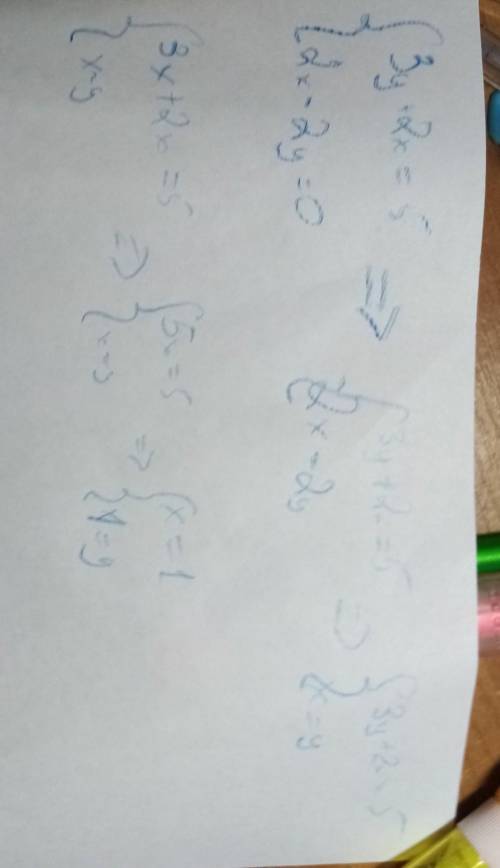 { 3y+2x=5
{ 2x-2y=0
⇒
{ 3y+2x=5
{ 2x=2y
⇒
{ 3y+2x=5
{ x=y
{ 3x+2x=5
{ x=y
⇒
{ 5x=5
{ x=y
⇒
{ x=1
{ 1=y